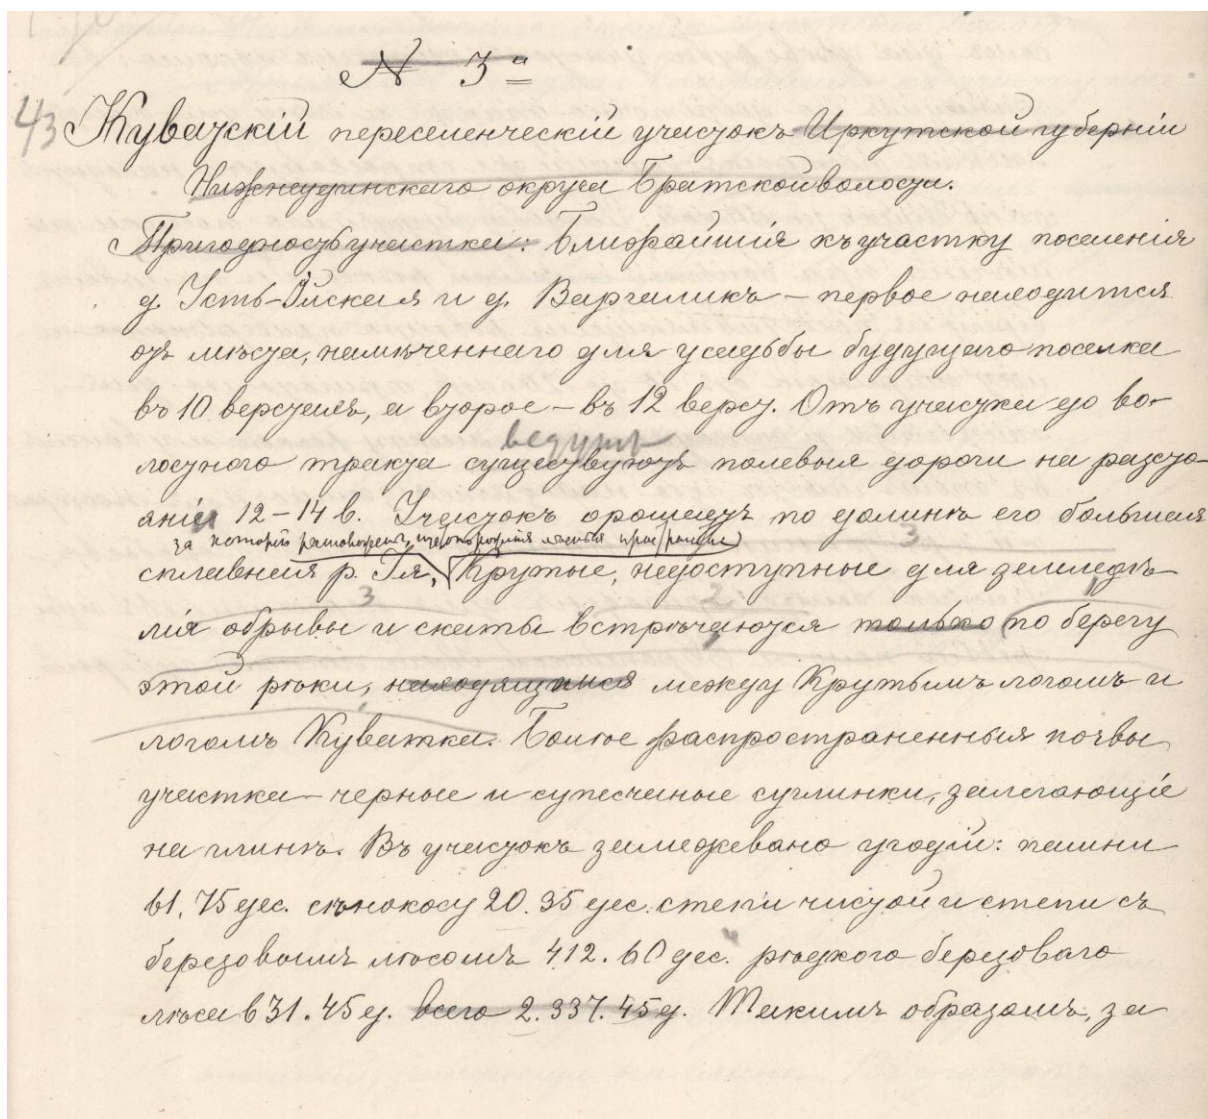 № 3а
43 Кувацкій переселенческій участокъ Иркутской губерніи
Нижнеудинскаго округа Братской волости.
Пригодность участка: Ближайшія къ участку поселенія
д. Усть-Ійская и д. Варгаликъ – первое находится
отъ мѣста, намѣченнаго для усадьбы будущаго поселка
въ 10 верстахъ, а второе – въ 12 верст. Отъ участка до во-
ведутъ
лостного тракта существуютъ полевыя дороги на разсто-
яніи 12–14 в. Участокъ орошаетъ по долинѣ его большая
за которой расположены
сплавная р. Ія, Крутые, недоступные для земледѣ-
лія обрывы и скаты встрѣчаются только по берегу
этой рѣки, находящимися между Крутымъ логомъ и
логомъ Куватка. Болѣе распространенныя почвы
участка – черные и супесчаные суглинки, залегающіе
на глинѣ. Въ участокъ замежевано угодій: пашни
61.75 дес. сѣнокосу 20.35 дес. степи чистой и степи съ
березовымъ лѣсомъ 412.60 дес. рѣдкого березоваго
лѣса 631.45 д. всего 2.337.45 д. Такимъ образомъ, за